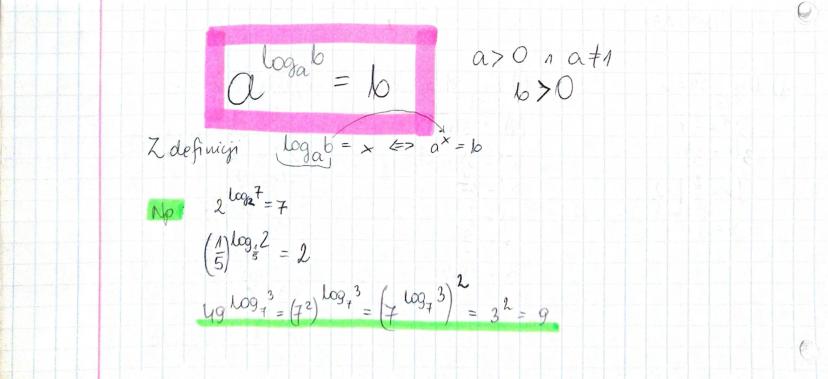 a^{log_a b} = b
a > 0 ∧ a ≠ 1
b > 0
Z definicji log_a b = x <=> a^x = b
Np. 2^{log_2 7} = 7
(1/5)^{log_{1/5} 2} = 2
49^{log_7 3} = (7^2)^{log_7 3} = (7^{log_7 3})^2 = 3^2 = 9